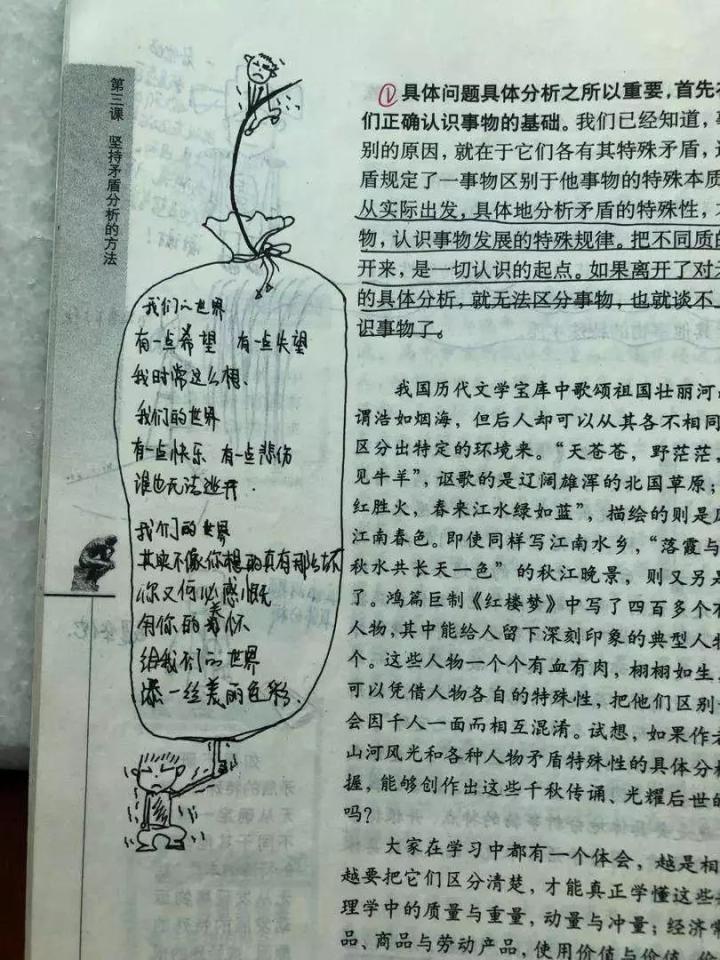 第三课 坚持矛盾分析的方法
我们的世界
有一点希望 有一点失望
我时常这么想、
我们的世界
有一点快乐 有一点悲伤
谁也无法逃开.
我们的世界
其实不像你想的真有那么坏
你又何必感慨
用你的关怀
给我们的世界
添一丝美丽色彩.
①具体问题具体分析之所以重要,首先
们正确认识事物的基础。我们已经知道,
别的原因,就在于它们各有其特殊矛盾,
盾规定了一事物区别于他事物的特殊本质
从实际出发,具体地分析矛盾的特殊性,
物,认识事物发展的特殊规律。把不同质的
开来,是一切认识的起点。如果离开了对
的具体分析,就无法区分事物,也就谈不
识事物了。
我国历代文学宝库中歌颂祖国壮丽河
谓浩如烟海,但后人却可以从其各不相同
区分出特定的环境来。“天苍苍,野茫茫,
见牛羊”,讴歌的是辽阔雄浑的北国草原;
红胜火,春来江水绿如蓝”,描绘的则是
江南春色。即使同样写江南水乡,“落霞与
秋水共长天一色”的秋江晚景,则又另
了。鸿篇巨制《红楼梦》中写了四百多个
人物,其中能给人留下深刻印象的典型人物
个。这些人物一个个有血有肉,栩栩如生
可以凭借人物各自的特殊性,把他们区别
会因千人一面而相互混淆。试想,如果作
山河风光和各种人物矛盾特殊性的具体分
握,能够创作出这些千秋传诵、光耀后世的
吗?
大家在学习中都有一个体会,越是相
越要把它们区分清楚,才能真正学懂这些
理学中的质量与重量,动量与冲量;经济
品、商品与劳动产品,使用价值与价值、